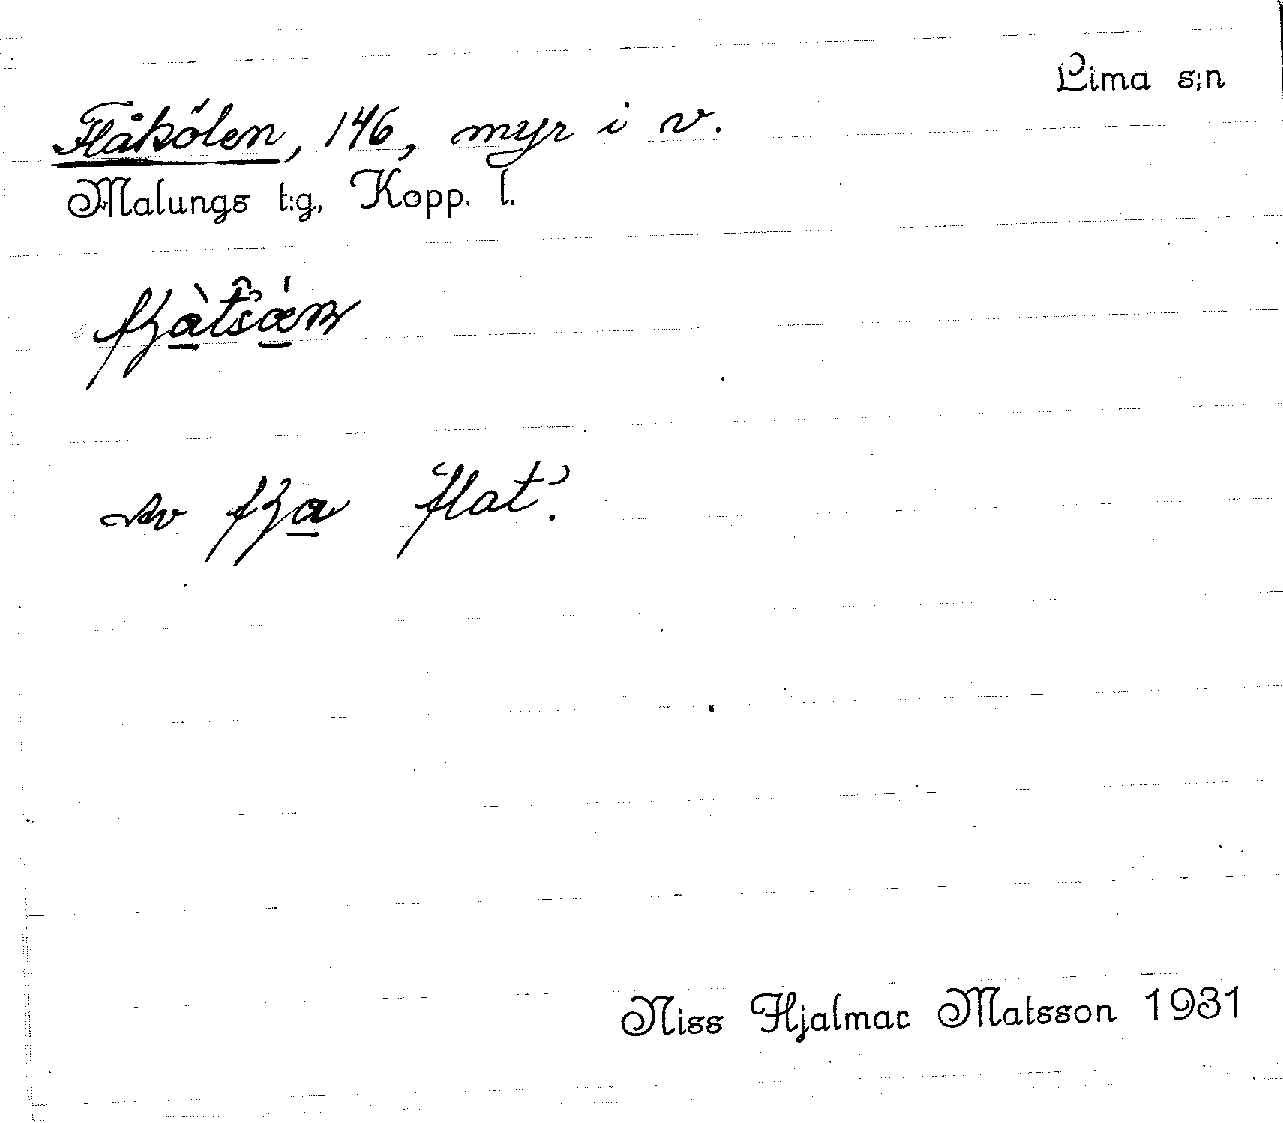 Lima s:n
Flåkölen, 146, myr i v.
Malungs t:g, Kopp. l.
Av flɑ 'flat'.
Niss Hjalmar Matsson 1931